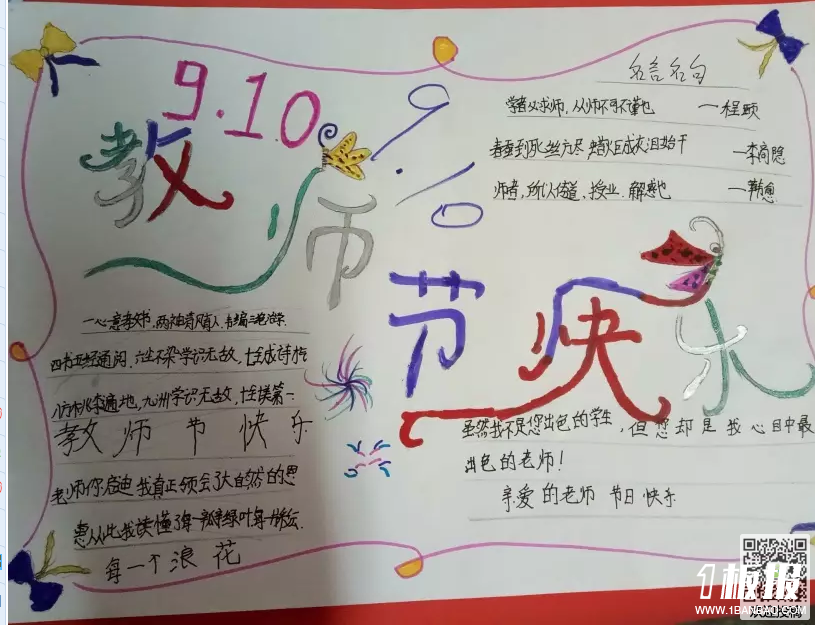 9.10
9.10
教师
节快乐
名言名句
学者必求师,从师不可不谨也 一程颐
春蚕到死丝方尽 蜡炬成灰泪始干 一李商隐
师者,所以传道,授业,解惑也 一韩愈
一心一意教书,两袖清风育人
四书五经通阅,六尘不染学识无故
八方桃李遍地,九洲学识无故
教师节快乐
老师你启迪我真正领会了大自然的恩
惠从此我读懂了每一瓣绿叶每一
每一个浪花
虽然我不是您出色的学生,但您却是我心目中最
出色的老师!
亲爱的老师 节日快乐
1板报
WWW.1BANBAO.COM
欢迎投稿